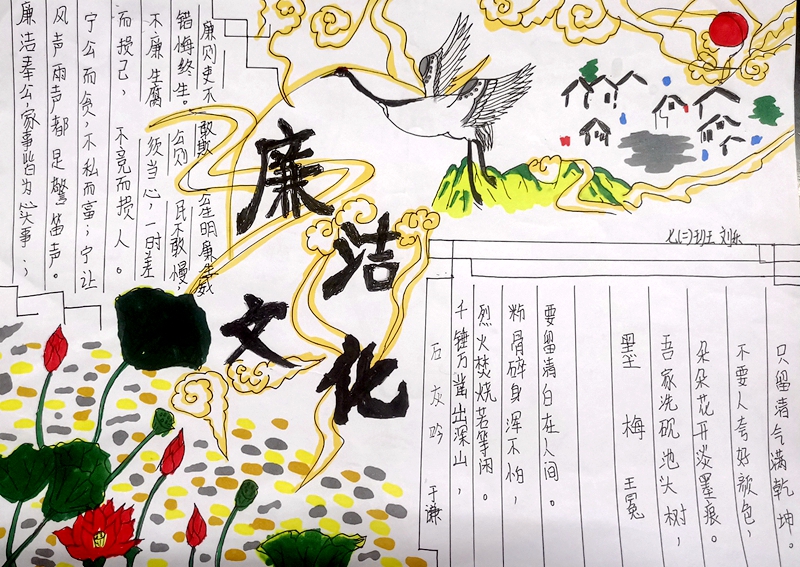 廉洁文化
廉洁奉公，家事皆为心头事；
风声雨声都是警笛声。
宁公而贪，不私而富；宁让
而损己，不亮而损人。
不廉生腐 须当心，一时差
错悔终生。 公则 民不敢慢，
廉则吏不 敢欺 公生明廉生威
七(二)班 刘乐
石灰吟 于谦
千锤万凿出深山，
烈火焚烧若等闲。
粉骨碎身浑不怕，
要留清白在人间。
墨梅 王冕
吾家洗砚池头树，
朵朵花开淡墨痕。
不要人夸好颜色，
只留清气满乾坤。